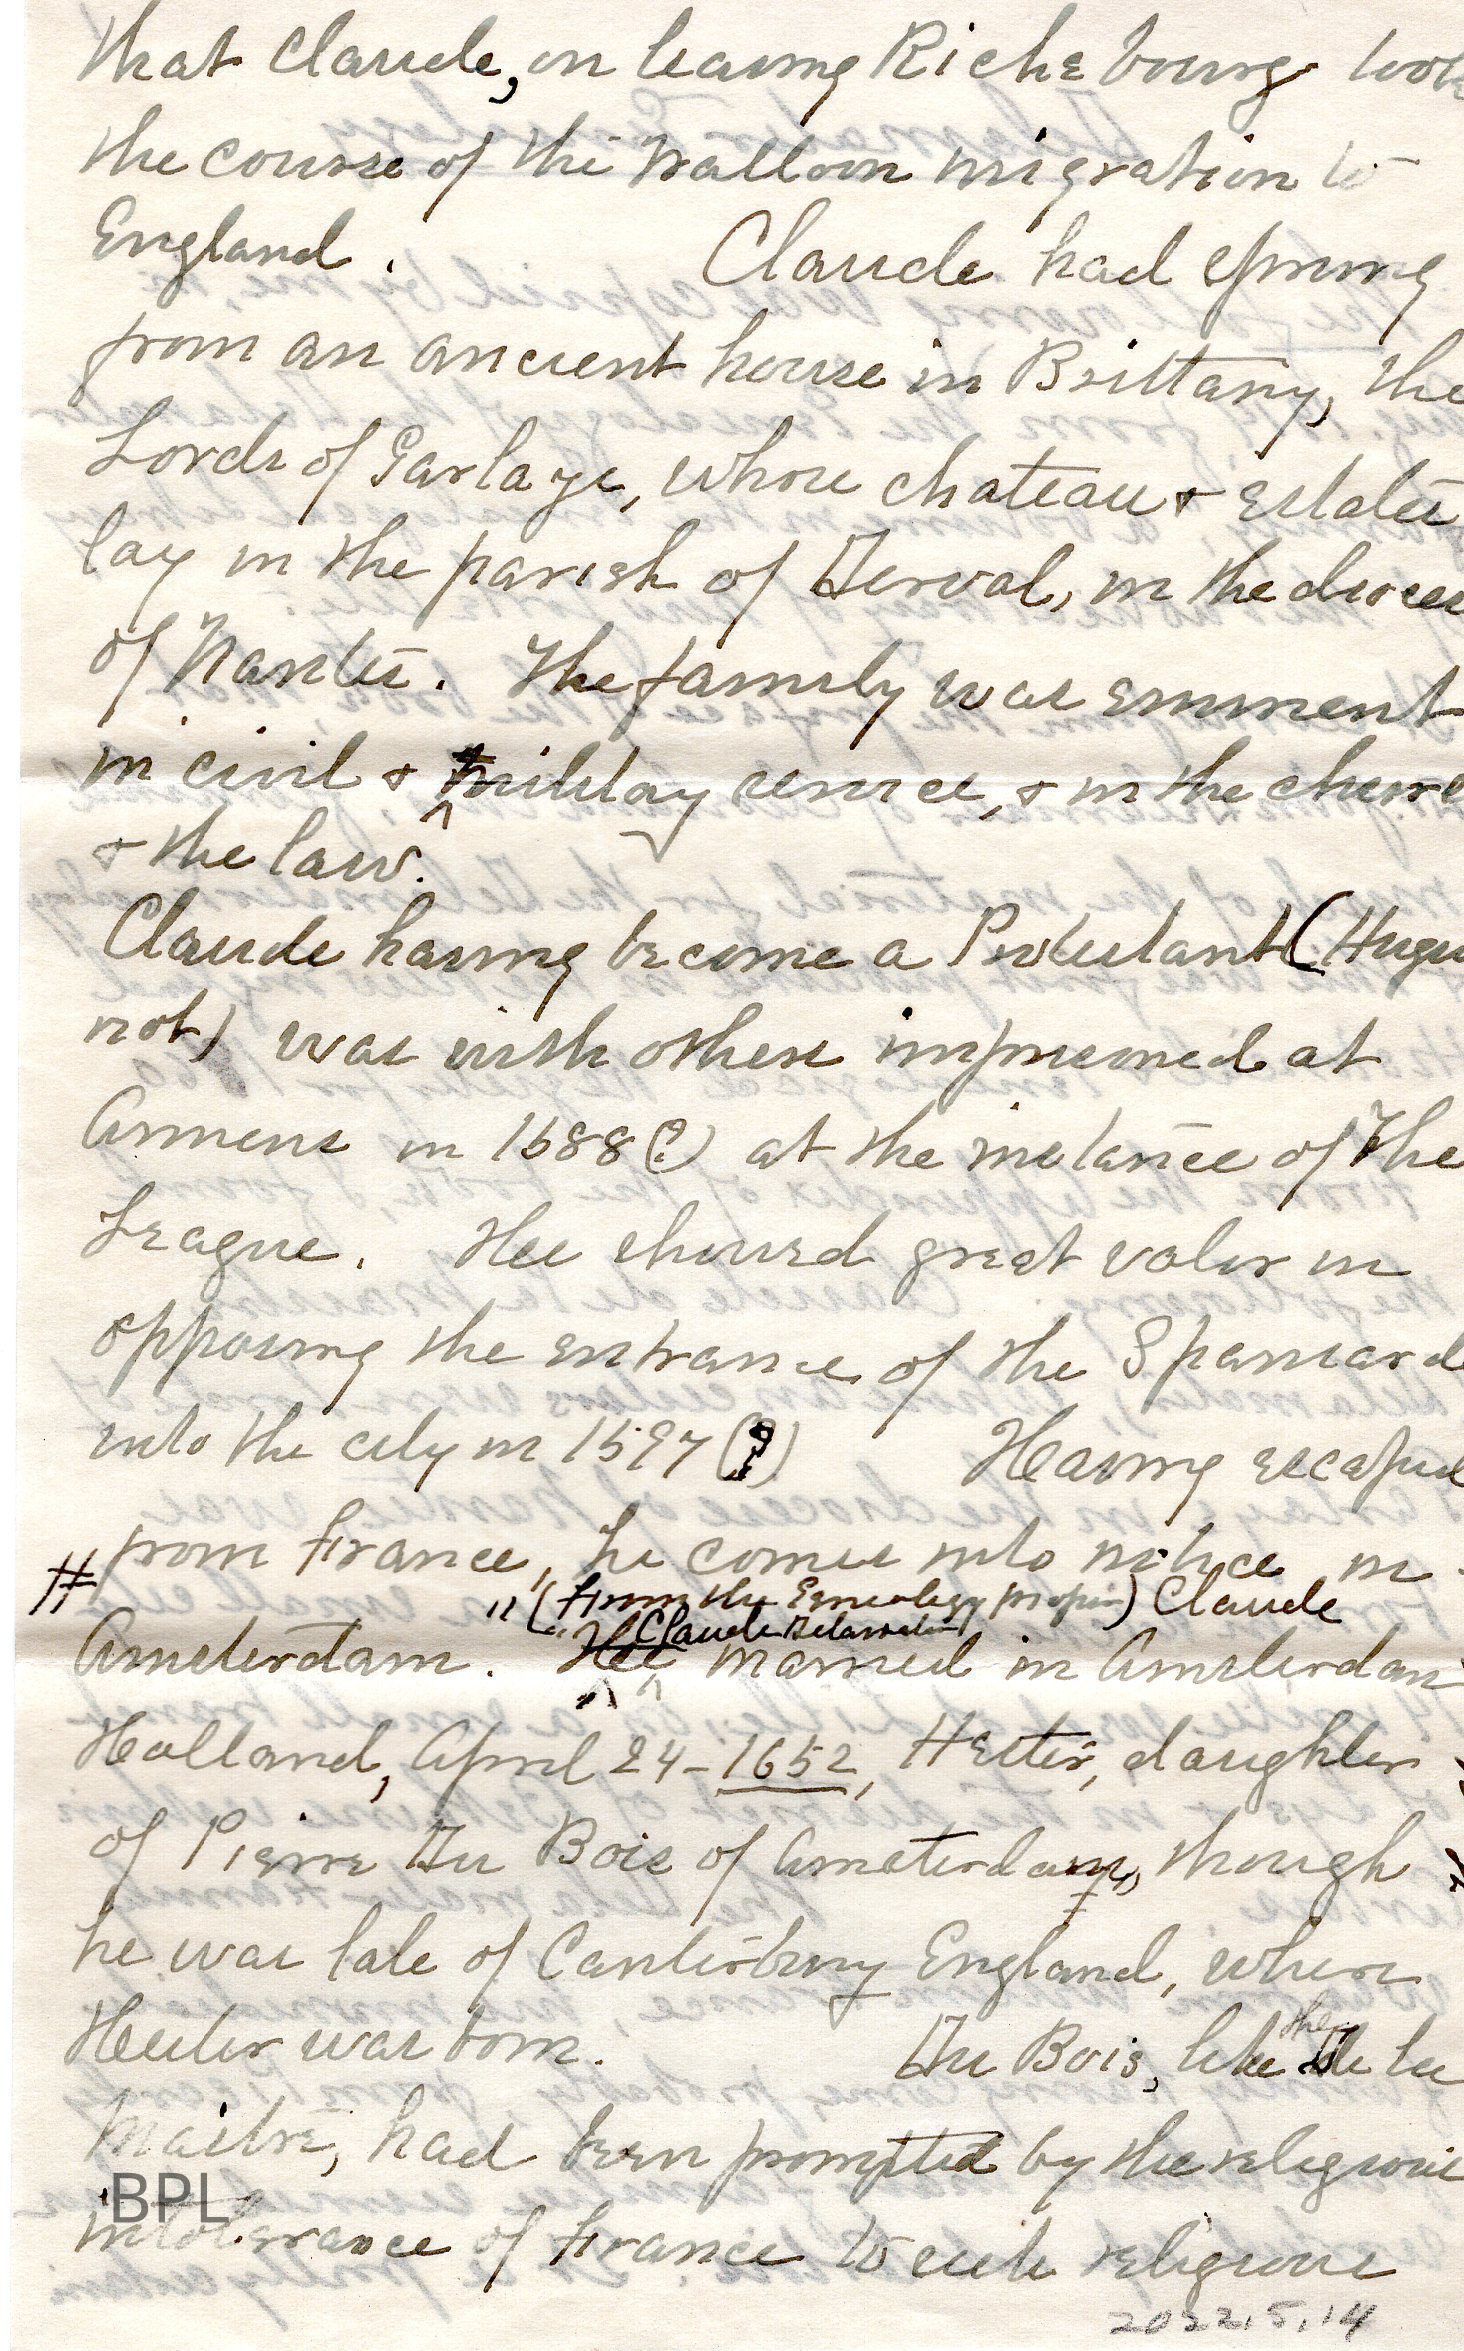 that Claude, on leaving Richebourg took
the course of the Walloon migration to
England. Claude had sprung
from an ancient house in Brittany, the
Lords of Garlaye, whose chateau & estates
lay in the parish of Derval, in the dioces
of Nantes. The family was eminent
in civil & military service, & in the churc
& the law.
Claude having become a Protestant (Hugu
not) was with others imprisoned at
Amiens in 1588(?) at the instance of The
League. He showed great valor in
opposing the entrance of the Spaniard
into the city in 1597 (?) Having escaped
from France, he comes into notice in
# "(from the Genealogy proper) Claude
Claude Delamater
Amsterdam. He married in Amsterdam
Holland, April 24-1652, Hester, daughter
of Pierre Du Bois of Amsterdam, though
he was late of Canterbury England, where
Hester was born. Du Bois, like the De la
Maitre, had been prompted by the religious
intolerance of France to seek religious
BPL
2022.5.14